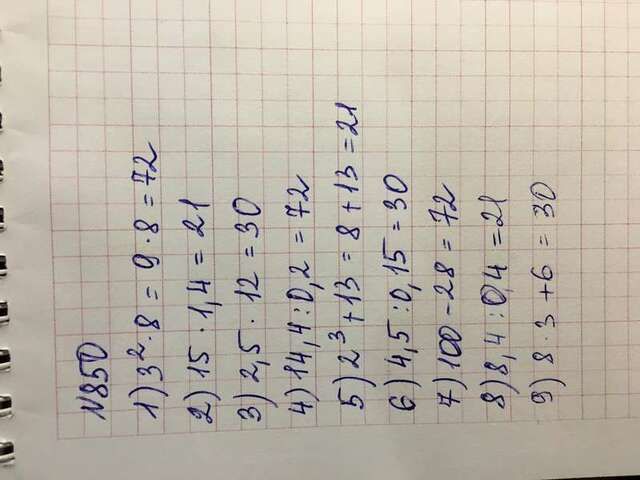 N850
1) 3²·8 = 9·8 = 72
2) 15·1,4 = 21
3) 2,5·12 = 30
4) 14,4:0,2 = 72
5) 2³+13 = 8+13 = 21
6) 4,5:0,15 = 30
7) 100-28 = 72
8) 8,4:0,4 = 21
9) 8·3+6 = 30